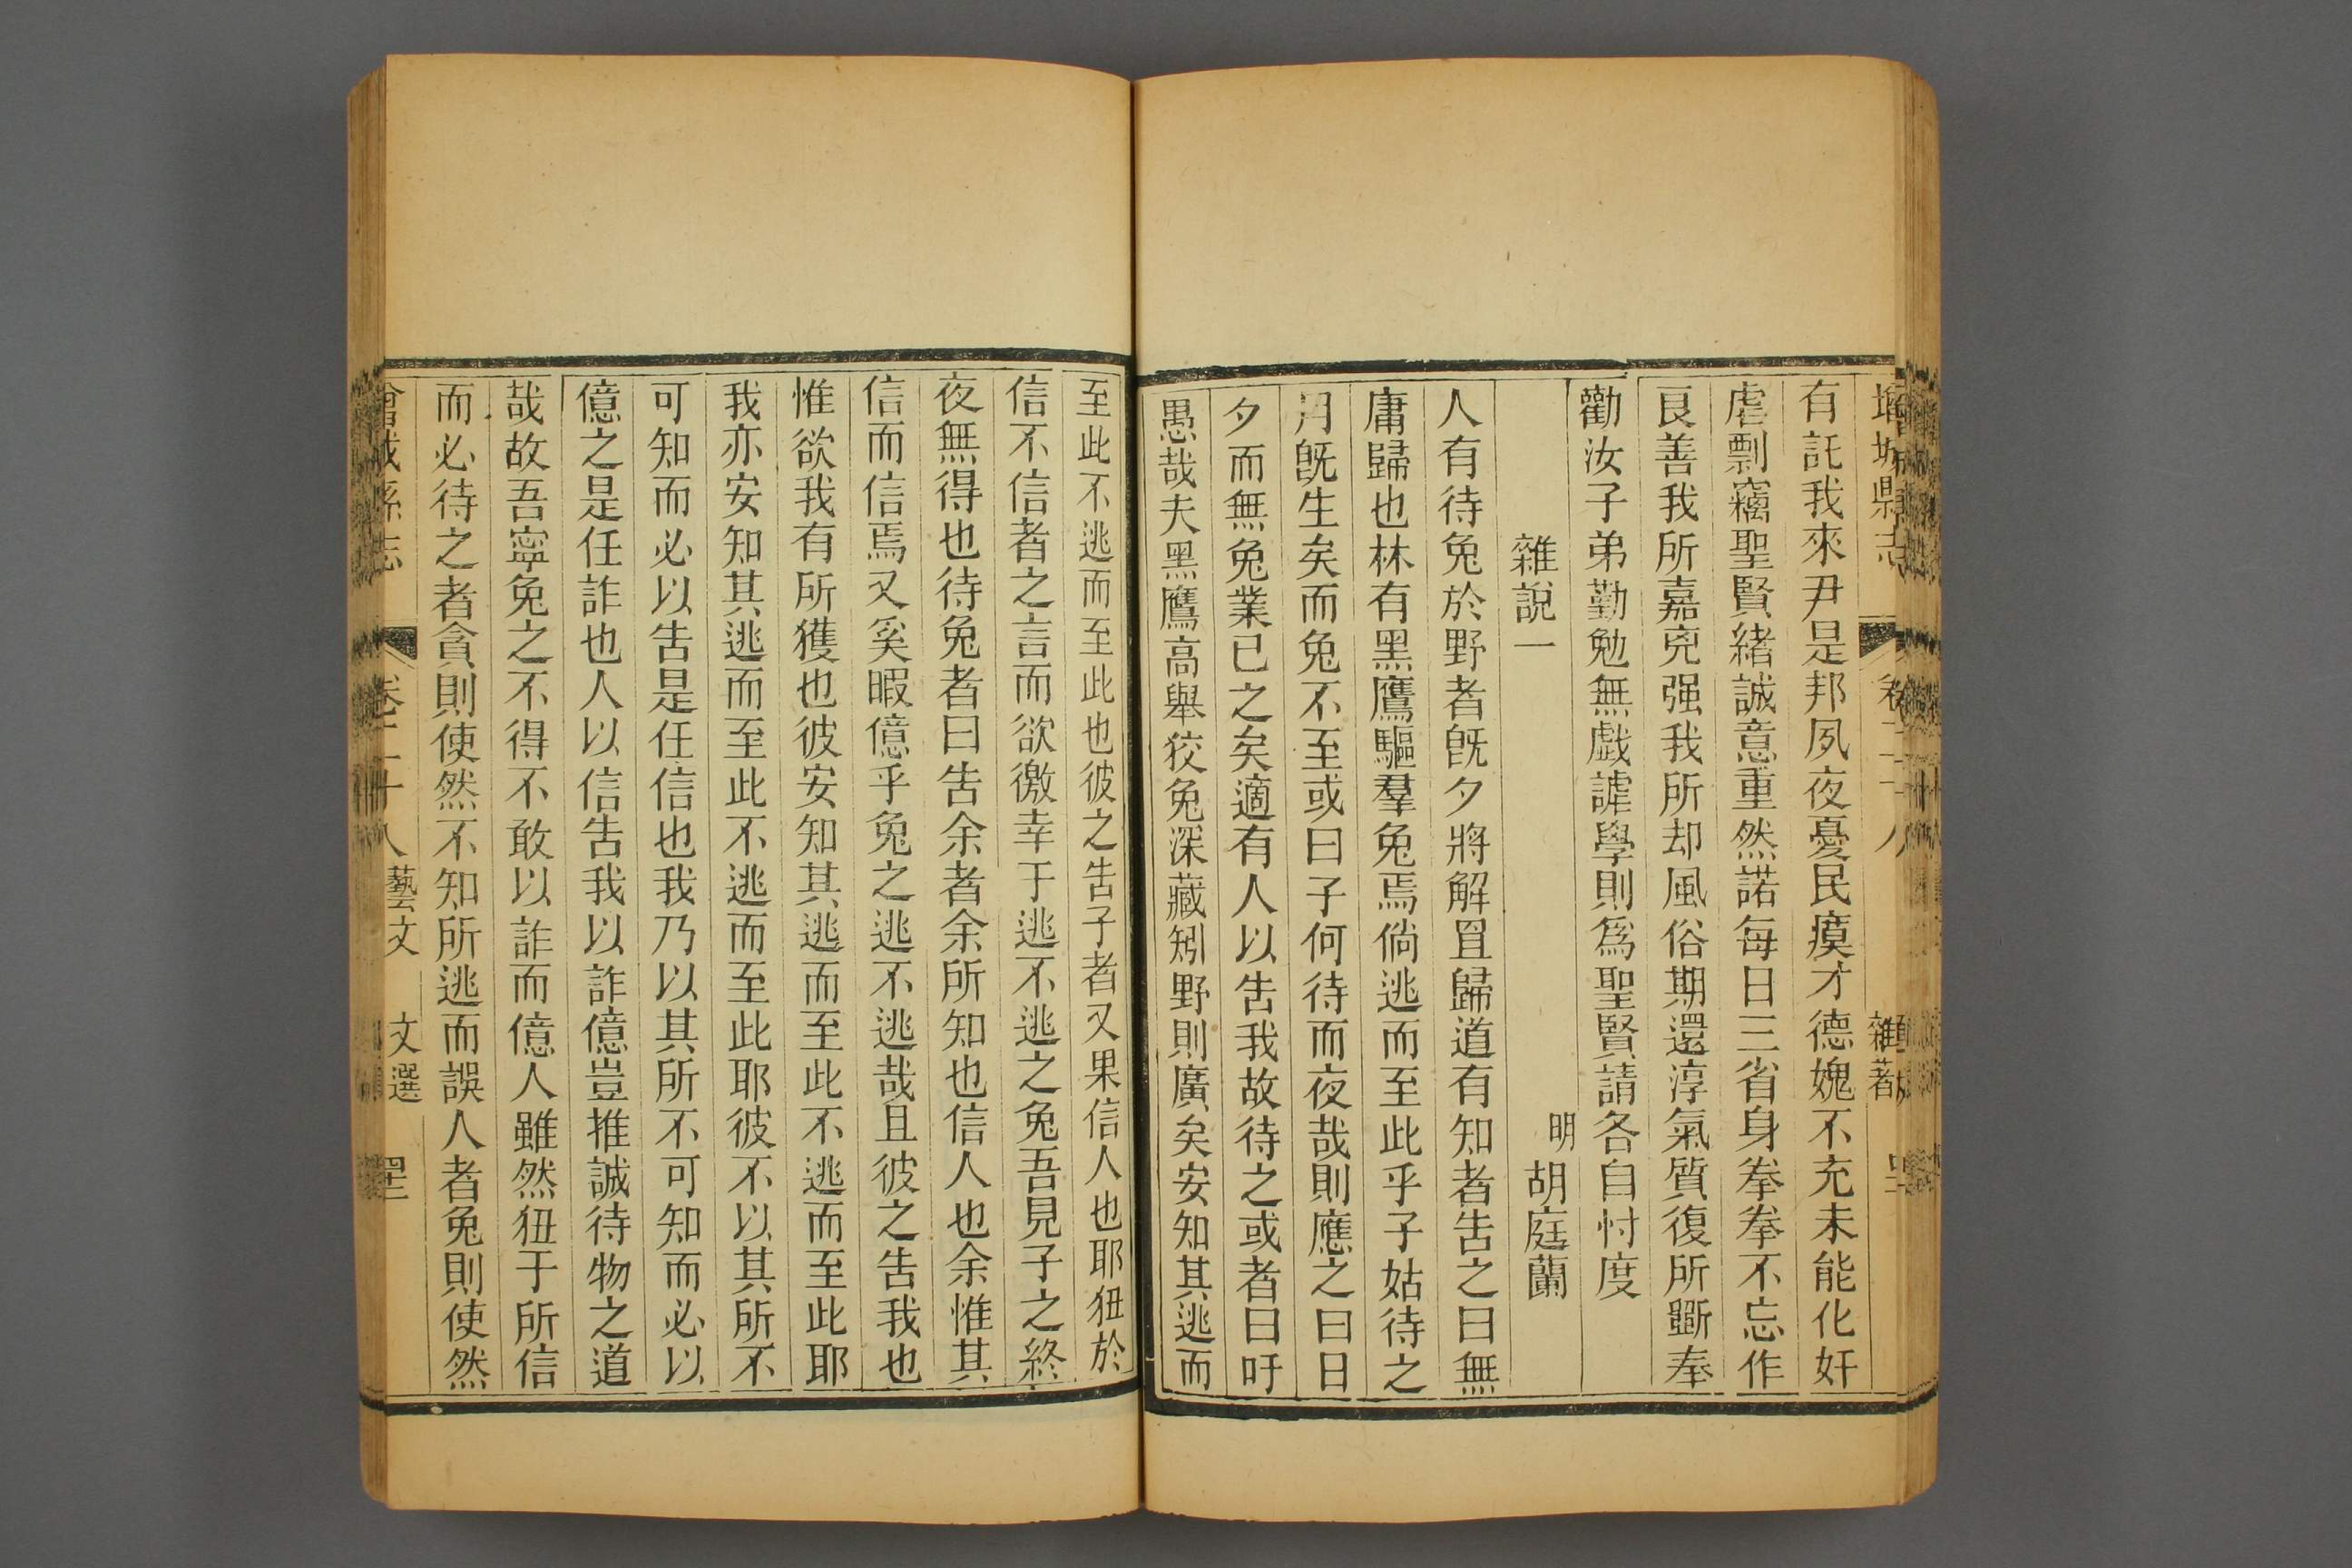 增城縣志 卷二十八 雜著
有託我來尹是邦夙夜憂民瘼才德媿不充未能化奸
虐剽竊聖賢緒誠意重然諾每日三省身拳拳不忘作
良善我所嘉兇强我所却風俗期還淳氣質復所斵奉
勸汝子弟勤勉無戲謔學則爲聖賢請各自忖度
雜說一 明胡庭蘭
人有待兔於野者旣夕將解罝歸道有知者告之曰無
庸歸也林有黑鷹驅羣兔焉倘逃而至此乎子姑待之
月旣生矣而兔不至或曰子何待而夜哉則應之曰日
夕而無兔業已之矣適有人以告我故待之或者曰吁
愚哉夫黑鷹高舉狡兔深藏矧野則廣矣安知其逃而
至此不逃而至此也彼之告子者又果信人也耶狃於
信不信者之言而欲徼幸于逃不逃之兔吾見子之終
夜無得也待兔者曰告余者余所知也信人也余惟其
信而信焉又奚暇億乎兔之逃不逃哉且彼之告我也
惟欲我有所獲也彼安知其逃而至此不逃而至此耶
我亦安知其逃而至此不逃而至此耶彼不以其所不
可知而必以告是任信也我乃以其所不可知而必以
億之是任詐也人以信告我以詐億豈推誠待物之道
哉故吾寧兔之不得不敢以詐而億人雖然狃于所信
而必待之者貪則使然不知所逃而誤人者兔則使然
增城縣志 卷二十八 藝文 文選